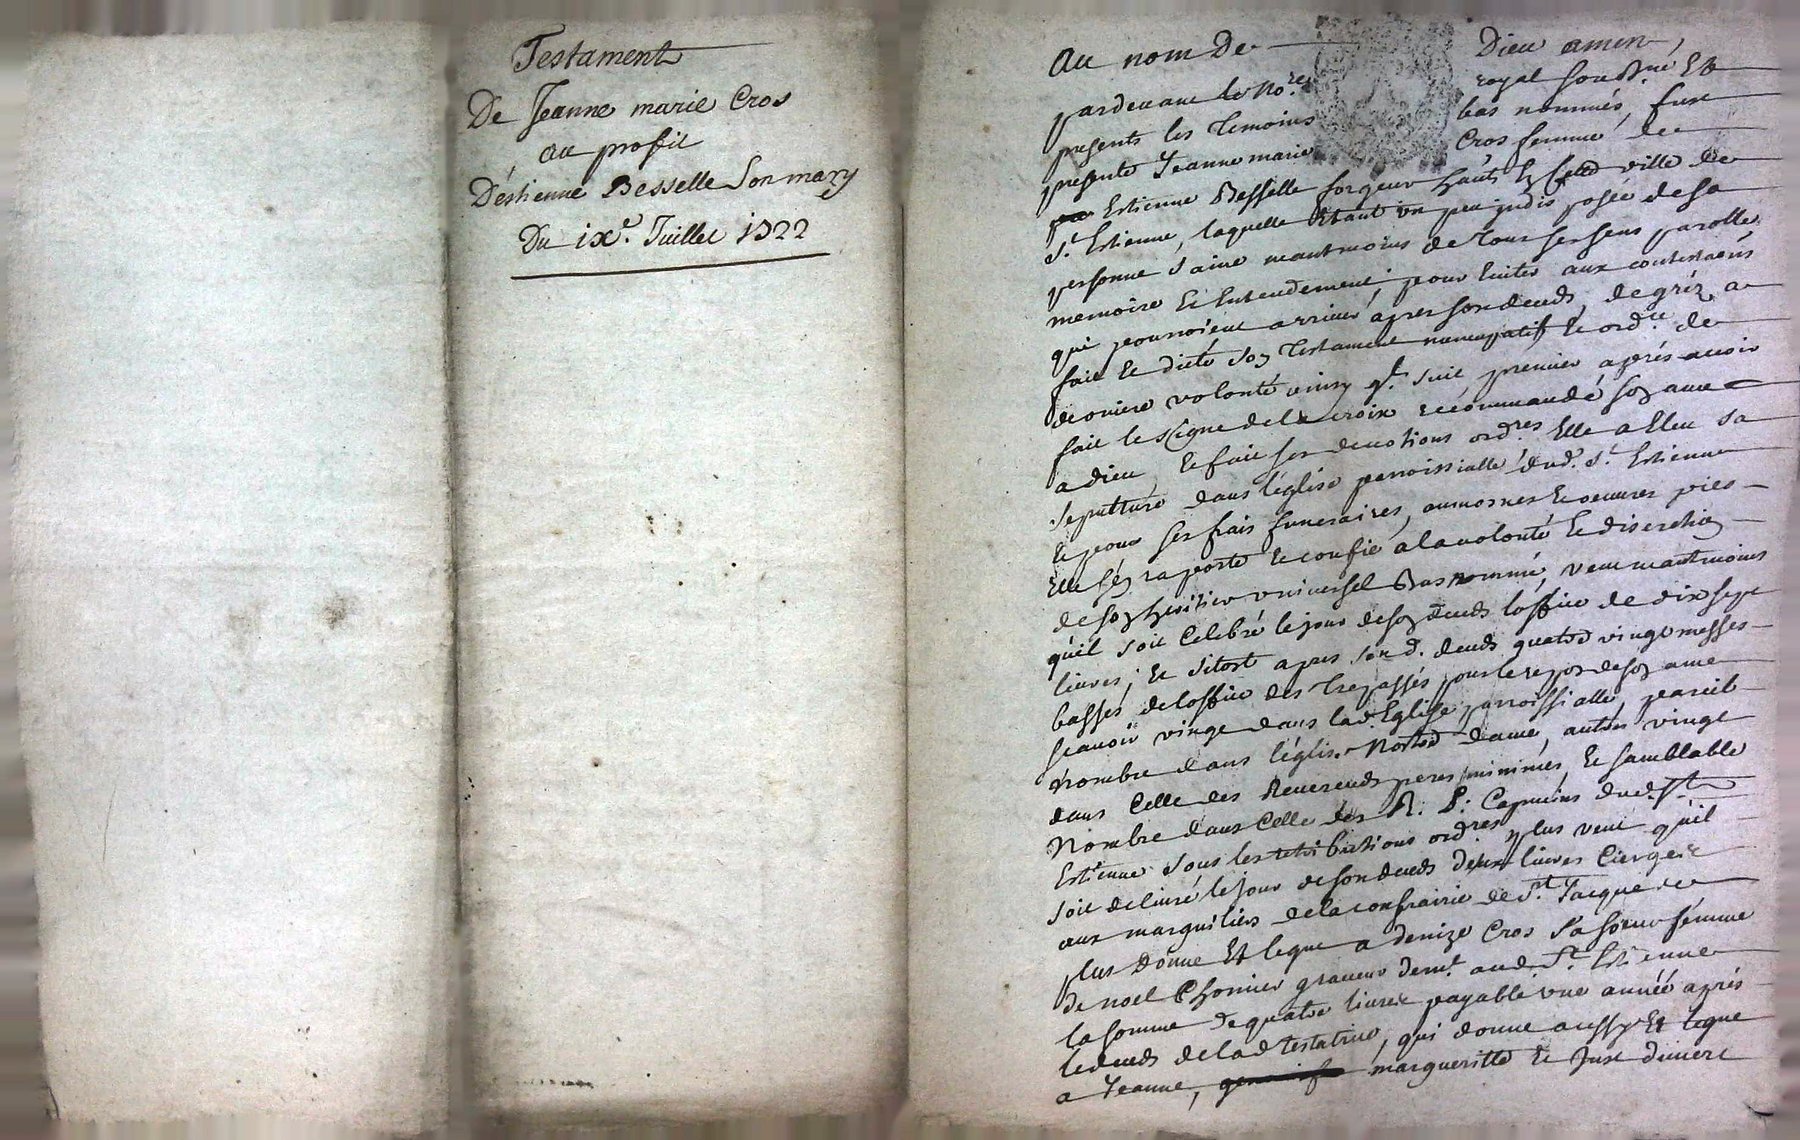 Testament
De Jeanne marie Cros
au profit
D'estienne Besselle Son mary
Du ixe. Juillet 1722
Au nom De Dieu amen,
pardevant le No.re royal soubsne. Et
presents les temoins bas nommés, fust
presente Jeanne marie Cros femme de
Estienne Besselle forgeur habt. En cette ville de
St. Estienne, laquelle Etant un peu indisposée de sa
personne saine neantmoins de tous ses sens parolle
memoire Et Entendement, pour Eviter aux contestaons
qui pourroient arriver apres son deceds, de gréz a
fait Et dicté son testament nuncupatif Et ordre. de
derniere volonté ainsy qt. suit, premier aprés avoir
fait le signe de la croix recommandé son ame
a dieu, Et fait ses devotions ordres. Elle a Eleu sa
sepulture dans l'église parroissialle dud. St. Estienne
Et pour ses frais funeraires, aumosnes Et oeuvres pies
Elle s'en raporte Et confie a la volonté Et discretion
de son heritier universel Bas nommé, veut neantmoins
qu'il soit Celebré le jour de son deceds l'office de dix sept
livres; Et sitost apres son d. deceds quatre vingt messes
basses de l'office des trepassés pour le repos de son ame
scavoir vingt dans lad. Eglise parroissialle, pareil
nombre dans l'église Nostre dame, autres vingt
dans Celle des Reverends peres minimes, Et samblable
Nombre dans Celle des R. P. Capucins dud. St.
Estienne sous les retributions ordres, plus veut qu'il
soit delivré le jour de son deceds deux livres Cierge
aux marguiliers de la confrairie de St. Jacque de
plus donne Et legue a denize Cros Sa soeur femme
de noel Chomier graveur demt. aud. St. Estienne
la somme de quatre livres payable une année aprés
le deceds de lad testatrice, qui donne aussy Et legue
a Jeanne, margueritte Et Just dimier